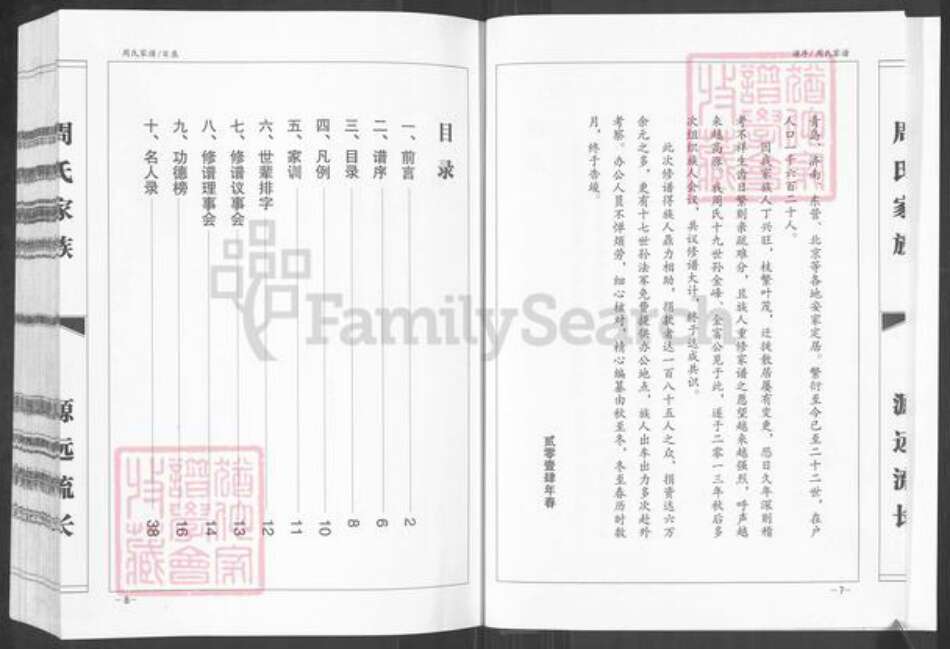 谱序/周氏家谱
青岛、济南、东营、北京等各地安家定居。繁衍至今已至二十二世，在户
人口一千六百二十人。
因我家族人丁兴旺，枝繁叶茂，迁徙散居屡有变更，恐日久年深则稽
考不祥生齿日繁则亲疏难分，且族人重修家谱之愿望越来越强烈，呼声越
来越高涨。我周氏十九世孙金峰、全富公见于此，遂于二零一三年秋后多
次组织族人会议，共议修谱大计，终于达成共识。
此次修谱得族人鼎力相助，捐款者达一百八十五人之众，捐资达六万
余元之多，更有十七世孙法军免费提供办公地点，族人出车出力多次赴外
考察。办公人员不惮烦劳，细心核对，精心编纂由秋至冬，冬至春历时数
月，终于告竣。
贰零壹肆年春
-7-
周氏家族
源远流长
周氏家谱/目录
目录
一、前言 2
二、谱序 6
三、目录 8
四、凡例 10
五、家训 11
六、世辈排字 12
七、修谱议事会 13
八、修谱理事会 14
九、功德榜 16
十、名人录 38
-8-
周氏家族
源远流长
FamilySearch
谱学会
收藏